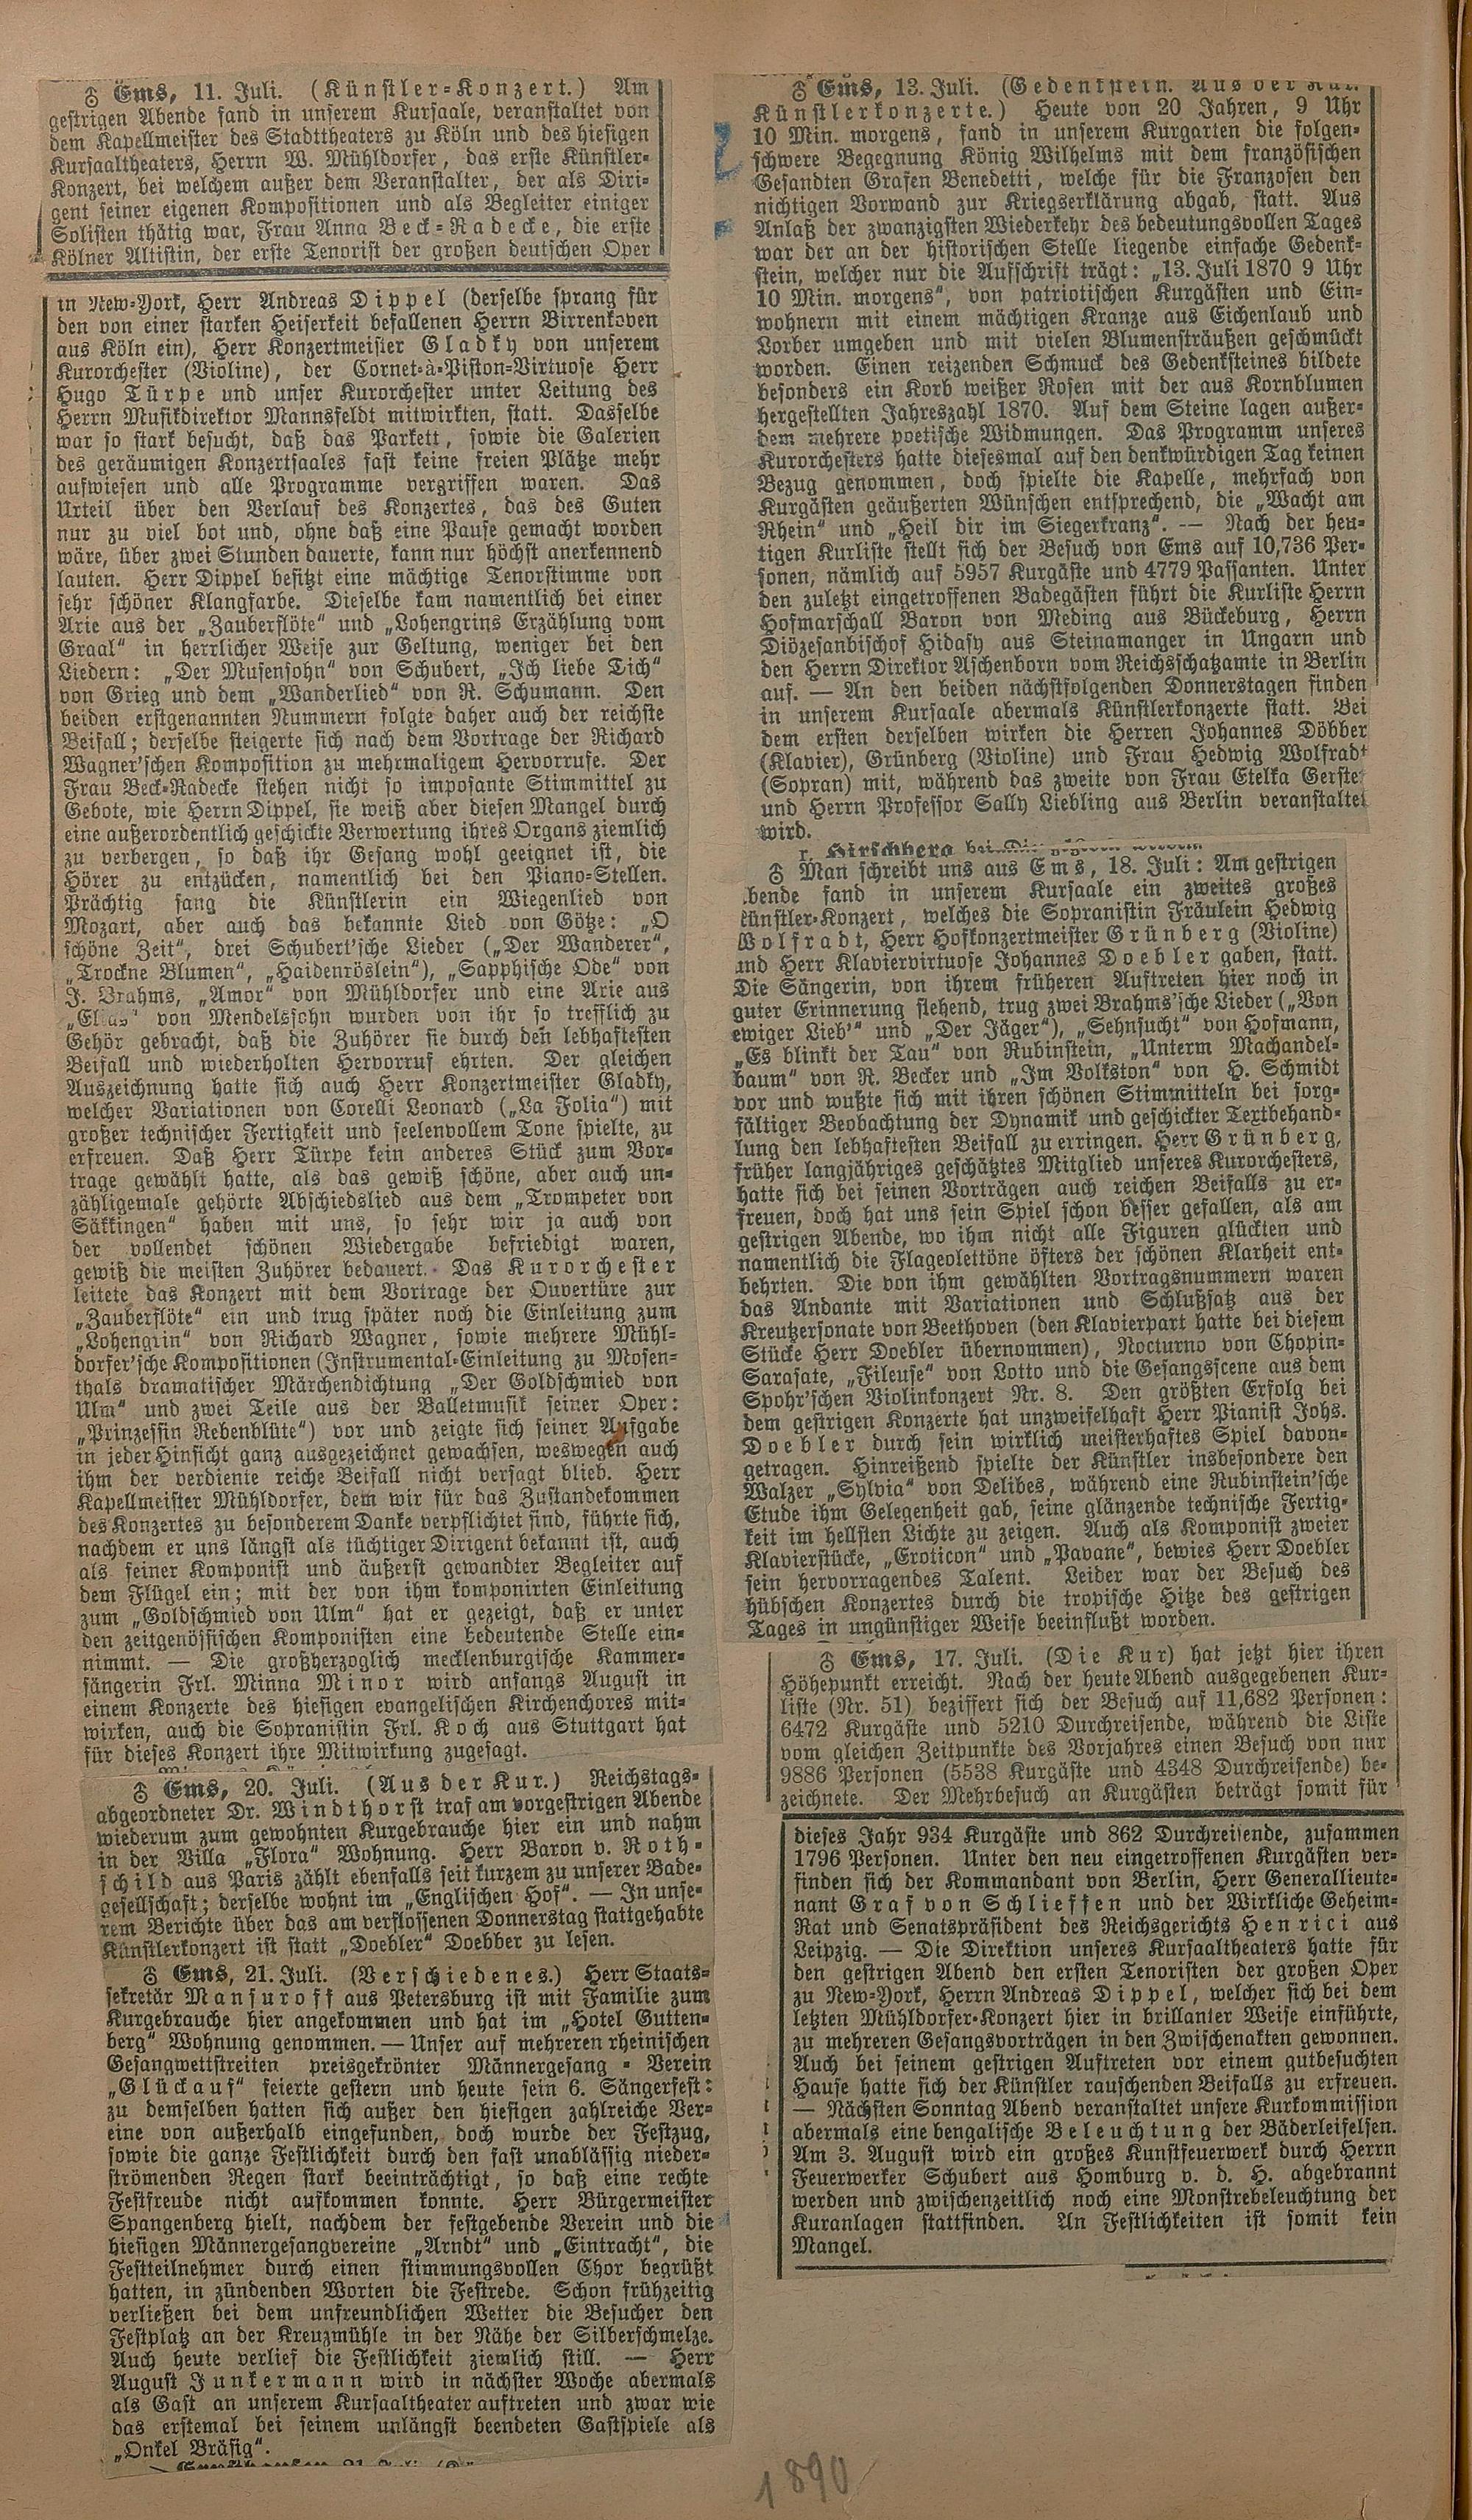 ♁ Ems, 11. Juli. (Künstler-Konzert.) Am
gestrigen Abende fand in unserem Kursaale, veranstaltet von
dem Kapellmeister des Stadttheaters zu Köln und des hiesigen
Kursaaltheaters, Herrn W. Mühldorfer, das erste Künstler-
Konzert, bei welchem außer dem Veranstalter, der als Diri-
gent seiner eigenen Kompositionen und als Begleiter einiger
Solisten thätig war, Frau Anna Beck-Radecke, die erste
Kölner Altistin, der erste Tenorist der großen deutschen Oper
in New-York, Herr Andreas Dippel (derselbe sprang für
den von einer starken Heiserkeit befallenen Herrn Birrenkoven
aus Köln ein), Herr Konzertmeister Gladky von unserem
Kurorchester (Violine), der Cornet-à-Piston-Virtuose Herr
Hugo Türpe und unser Kurorchester unter Leitung des
Herrn Musikdirektor Mannsfeldt mitwirkten, statt. Dasselbe
war so stark besucht, daß das Parkett, sowie die Galerien
des geräumigen Konzertsaales fast keine freien Plätze mehr
aufwiesen und alle Programme vergriffen waren. Das
Urteil über den Verlauf des Konzertes, das des Guten
nur zu viel bot und, ohne daß eine Pause gemacht worden
wäre, über zwei Stunden dauerte, kann nur höchst anerkennend
lauten. Herr Dippel besitzt eine mächtige Tenorstimme von
sehr schöner Klangfarbe. Dieselbe kam namentlich bei einer
Arie aus der „Zauberflöte“ und „Lohengrins Erzählung vom
Graal“ in herrlicher Weise zur Geltung, weniger bei den
Liedern: „Der Musensohn“ von Schubert, „Ich liebe Dich“
von Grieg und dem „Wanderlied“ von R. Schumann. Den
beiden erstgenannten Nummern folgte daher auch der reichste
Beifall; derselbe steigerte sich nach dem Vortrage der Richard
Wagner'schen Komposition zu mehrmaligem Hervorrufe. Der
Frau Beck-Radecke stehen nicht so imposante Stimmittel zu
Gebote, wie Herrn Dippel, sie weiß aber diesen Mangel durch
eine außerordentlich geschickte Verwertung ihres Organs ziemlich
zu verbergen, so daß ihr Gesang wohl geeignet ist, die
Hörer zu entzücken, namentlich bei den Piano-Stellen.
Prächtig sang die Künstlerin ein Wiegenlied von
Mozart, aber auch das bekannte Lied von Götze: „O
schöne Zeit“, drei Schubert'sche Lieder („Der Wanderer“,
„Trockne Blumen“, „Haidenröslein“), „Sapphische Ode“ von
J. Brahms, „Amor“ von Mühldorfer und eine Arie aus
„Elias“ von Mendelssohn wurden von ihr so trefflich zu
Gehör gebracht, daß die Zuhörer sie durch den lebhaftesten
Beifall und wiederholten Hervorruf ehrten. Der gleichen
Auszeichnung hatte sich auch Herr Konzertmeister Gladky,
welcher Variationen von Corelli Leonard („La Folia“) mit
großer technischer Fertigkeit und seelenvollem Tone spielte, zu
erfreuen. Daß Herr Türpe kein anderes Stück zum Vor-
trage gewählt hatte, als das gewiß schöne, aber auch un-
zähligemale gehörte Abschiedslied aus dem „Trompeter von
Säkkingen“ haben mit uns, so sehr wir ja auch von
der vollendet schönen Wiedergabe befriedigt waren,
gewiß die meisten Zuhörer bedauert. Das Kurorchester
leitete das Konzert mit dem Vortrage der Ouvertüre zur
„Zauberflöte“ ein und trug später noch die Einleitung zum
„Lohengrin“ von Richard Wagner, sowie mehrere Mühl-
dorfer'sche Kompositionen (Instrumental-Einleitung zu Mosen-
thals dramatischer Märchendichtung „Der Goldschmied von
Ulm“ und zwei Teile aus der Balletmusik seiner Oper:
„Prinzessin Rebenblüte“) vor und zeigte sich seiner Aufgabe
in jeder Hinsicht ganz ausgezeichnet gewachsen, weswegen auch
ihm der verdiente reiche Beifall nicht versagt blieb. Herr
Kapellmeister Mühldorfer, dem wir für das Zustandekommen
des Konzertes zu besonderem Danke verpflichtet sind, führte sich,
nachdem er uns längst als tüchtiger Dirigent bekannt ist, auch
als feiner Komponist und äußerst gewandter Begleiter auf
dem Flügel ein; mit der von ihm komponirten Einleitung
zum „Goldschmied von Ulm“ hat er gezeigt, daß er unter
den zeitgenössischen Komponisten eine bedeutende Stelle ein-
nimmt. — Die großherzoglich mecklenburgische Kammer-
sängerin Frl. Minna Minor wird anfangs August in
einem Konzerte des hiesigen evangelischen Kirchenchores mit-
wirken, auch die Sopranistin Frl. Koch aus Stuttgart hat
für dieses Konzert ihre Mitwirkung zugesagt.
♁ Ems, 20. Juli. (Aus der Kur.) Reichstags-
abgeordneter Dr. Windthorst traf am vorgestrigen Abende
wiederum zum gewohnten Kurgebrauche hier ein und nahm
in der Villa „Flora“ Wohnung. Herr Baron v. Roth-
schild aus Paris zählt ebenfalls seit kurzem zu unserer Bade-
gesellschaft; derselbe wohnt im „Englischen Hof“. — In unse-
rem Berichte über das am verflossenen Donnerstag stattgehabte
Künstlerkonzert ist statt „Doebler“ Doebber zu lesen.
♁ Ems, 21. Juli. (Verschiedenes.) Herr Staats-
sekretär Mansuroff aus Petersburg ist mit Familie zum
Kurgebrauche hier angekommen und hat im „Hotel Gutten-
berg“ Wohnung genommen. — Unser auf mehreren rheinischen
Gesangwettstreiten preisgekrönter Männergesang-Verein
„Glückauf“ feierte gestern und heute sein 6. Sängerfest:
zu demselben hatten sich außer den hiesigen zahlreiche Ver-
eine von außerhalb eingefunden, doch wurde der Festzug,
sowie die ganze Festlichkeit durch den fast unablässig nieder-
strömenden Regen stark beeinträchtigt, so daß eine rechte
Festfreude nicht aufkommen konnte. Herr Bürgermeister
Spangenberg hielt, nachdem der festgebende Verein und die
hiesigen Männergesangvereine „Arndt“ und „Eintracht“, die
Festteilnehmer durch einen stimmungsvollen Chor begrüßt
hatten, in zündenden Worten die Festrede. Schon frühzeitig
verließen bei dem unfreundlichen Wetter die Besucher den
Festplatz an der Kreuzmühle in der Nähe der Silberschmelze.
Auch heute verlief die Festlichkeit ziemlich still. — Herr
August Junkermann wird in nächster Woche abermals
als Gast an unserem Kursaaltheater auftreten und zwar wie
das erstemal bei seinem unlängst beendeten Gastspiele als
„Onkel Bräsig“.
♁ Ems, 13. Juli. (Gedenkstein. Aus der Kur.
Künstlerkonzerte.) Heute von 20 Jahren, 9 Uhr
10 Min. morgens, fand in unserem Kurgarten die folgen-
schwere Begegnung König Wilhelms mit dem französischen
Gesandten Grafen Benedetti, welche für die Franzosen den
nichtigen Vorwand zur Kriegserklärung abgab, statt. Aus
Anlaß der zwanzigsten Wiederkehr des bedeutungsvollen Tages
war der an der historischen Stelle liegende einfache Gedenk-
stein, welcher nur die Aufschrift trägt: „13. Juli 1870 9 Uhr
10 Min. morgens“, von patriotischen Kurgästen und Ein-
wohnern mit einem mächtigen Kranze aus Eichenlaub und
Lorber umgeben und mit vielen Blumensträußen geschmückt
worden. Einen reizenden Schmuck des Gedenksteines bildete
besonders ein Korb weißer Rosen mit der aus Kornblumen
hergestellten Jahreszahl 1870. Auf dem Steine lagen außer-
dem mehrere poetische Widmungen. Das Programm unseres
Kurorchesters hatte diesesmal auf den denkwürdigen Tag keinen
Bezug genommen, doch spielte die Kapelle, mehrfach von
Kurgästen geäußerten Wünschen entsprechend, die „Wacht am
Rhein“ und „Heil dir im Siegerkranz“. — Nach der heu-
tigen Kurliste stellt sich der Besuch von Ems auf 10,736 Per-
sonen, nämlich auf 5957 Kurgäste und 4779 Passanten. Unter
den zuletzt eingetroffenen Badegästen führt die Kurliste Herrn
Hofmarschall Baron von Meding aus Bückeburg, Herrn
Diözesanbischof Hidasy aus Steinamanger in Ungarn und
den Herrn Direktor Aschenborn vom Reichsschatzamte in Berlin
auf. — An den beiden nächstfolgenden Donnerstagen finden
in unserem Kursaale abermals Künstlerkonzerte statt. Bei
dem ersten derselben wirken die Herren Johannes Döbber
(Klavier), Grünberg (Violine) und Frau Hedwig Wolfradt
(Sopran) mit, während das zweite von Frau Etelka Gerster
und Herrn Professor Sally Liebling aus Berlin veranstaltet
wird.
♁ Man schreibt uns aus Ems, 18. Juli: Am gestrigen
bende fand in unserem Kursaale ein zweites großes
künstler-Konzert, welches die Sopranistin Fräulein Hedwig
Wolfradt, Herr Hofkonzertmeister Grünberg (Violine)
und Herr Klaviervirtuose Johannes Doebler gaben, statt.
Die Sängerin, von ihrem früheren Auftreten hier noch in
guter Erinnerung stehend, trug zwei Brahms'sche Lieder („Von
ewiger Lieb'“ und „Der Jäger“), „Sehnsucht“ von Hofmann,
„Es blinkt der Tau“ von Rubinstein, „Unterm Machandel-
baum“ von R. Becker und „Im Volkston“ von H. Schmidt
vor und wußte sich mit ihren schönen Stimmitteln bei sorg-
fältiger Beobachtung der Dynamik und geschickter Textbehand-
lung den lebhaftesten Beifall zu erringen. Herr Grünberg,
früher langjähriges geschätztes Mitglied unseres Kurorchesters,
hatte sich bei seinen Vorträgen auch reichen Beifalls zu er-
freuen, doch hat uns sein Spiel schon besser gefallen, als am
gestrigen Abende, wo ihm nicht alle Figuren glückten und
namentlich die Flageolettöne öfters der schönen Klarheit ent-
behrten. Die von ihm gewählten Vortragsnummern waren
das Andante mit Variationen und Schlußsatz aus der
Kreutzersonate von Beethoven (den Klavierpart hatte bei diesem
Stücke Herr Doebler übernommen), Nocturno von Chopin-
Sarasate, „Fileuse“ von Lotto und die Gesangsscene aus dem
Spohr'schen Violinkonzert Nr. 8. Den größten Erfolg bei
dem gestrigen Konzerte hat unzweifelhaft Herr Pianist Johs.
Doebler durch sein wirklich meisterhaftes Spiel davon-
getragen. Hinreißend spielte der Künstler insbesondere den
Walzer „Sylvia“ von Delibes, während eine Rubinstein'sche
Etude ihm Gelegenheit gab, seine glänzende technische Fertig-
keit im hellsten Lichte zu zeigen. Auch als Komponist zweier
Klavierstücke, „Eroticon“ und „Pavane“, bewies Herr Doebler
sein hervorragendes Talent. Leider war der Besuch des
hübschen Konzertes durch die tropische Hitze des gestrigen
Tages in ungünstiger Weise beeinflußt worden.
♁ Ems, 17. Juli. (Die Kur) hat jetzt hier ihren
Höhepunkt erreicht. Nach der heute Abend ausgegebenen Kur-
liste (Nr. 51) beziffert sich der Besuch auf 11,682 Personen:
6472 Kurgäste und 5210 Durchreisende, während die Liste
vom gleichen Zeitpunkte des Vorjahres einen Besuch von nur
9886 Personen (5538 Kurgäste und 4348 Durchreisende) be-
zeichnete. Der Mehrbesuch an Kurgästen beträgt somit für
dieses Jahr 934 Kurgäste und 862 Durchreisende, zusammen
1796 Personen. Unter den neu eingetroffenen Kurgästen ver-
finden sich der Kommandant von Berlin, Herr Generallieute-
nant Graf von Schlieffen und der Wirkliche Geheim-
Rat und Senatspräsident des Reichsgerichts Henrici aus
Leipzig. — Die Direktion unseres Kursaaltheaters hatte für
den gestrigen Abend den ersten Tenoristen der großen Oper
zu New-York, Herrn Andreas Dippel, welcher sich bei dem
letzten Mühldorfer-Konzert hier in brillanter Weise einführte,
zu mehreren Gesangsvorträgen in den Zwischenakten gewonnen.
Auch bei seinem gestrigen Auftreten vor einem gutbesuchten
Hause hatte sich der Künstler rauschenden Beifalls zu erfreuen.
— Nächsten Sonntag Abend veranstaltet unsere Kurkommission
abermals eine bengalische Beleuchtung der Bäderleifelsen.
Am 3. August wird ein großes Kunstfeuerwerk durch Herrn
Feuerwerker Schubert aus Homburg v. d. H. abgebrannt
werden und zwischenzeitlich noch eine Monstrebeleuchtung der
Kuranlagen stattfinden. An Festlichkeiten ist somit kein
Mangel.
1890